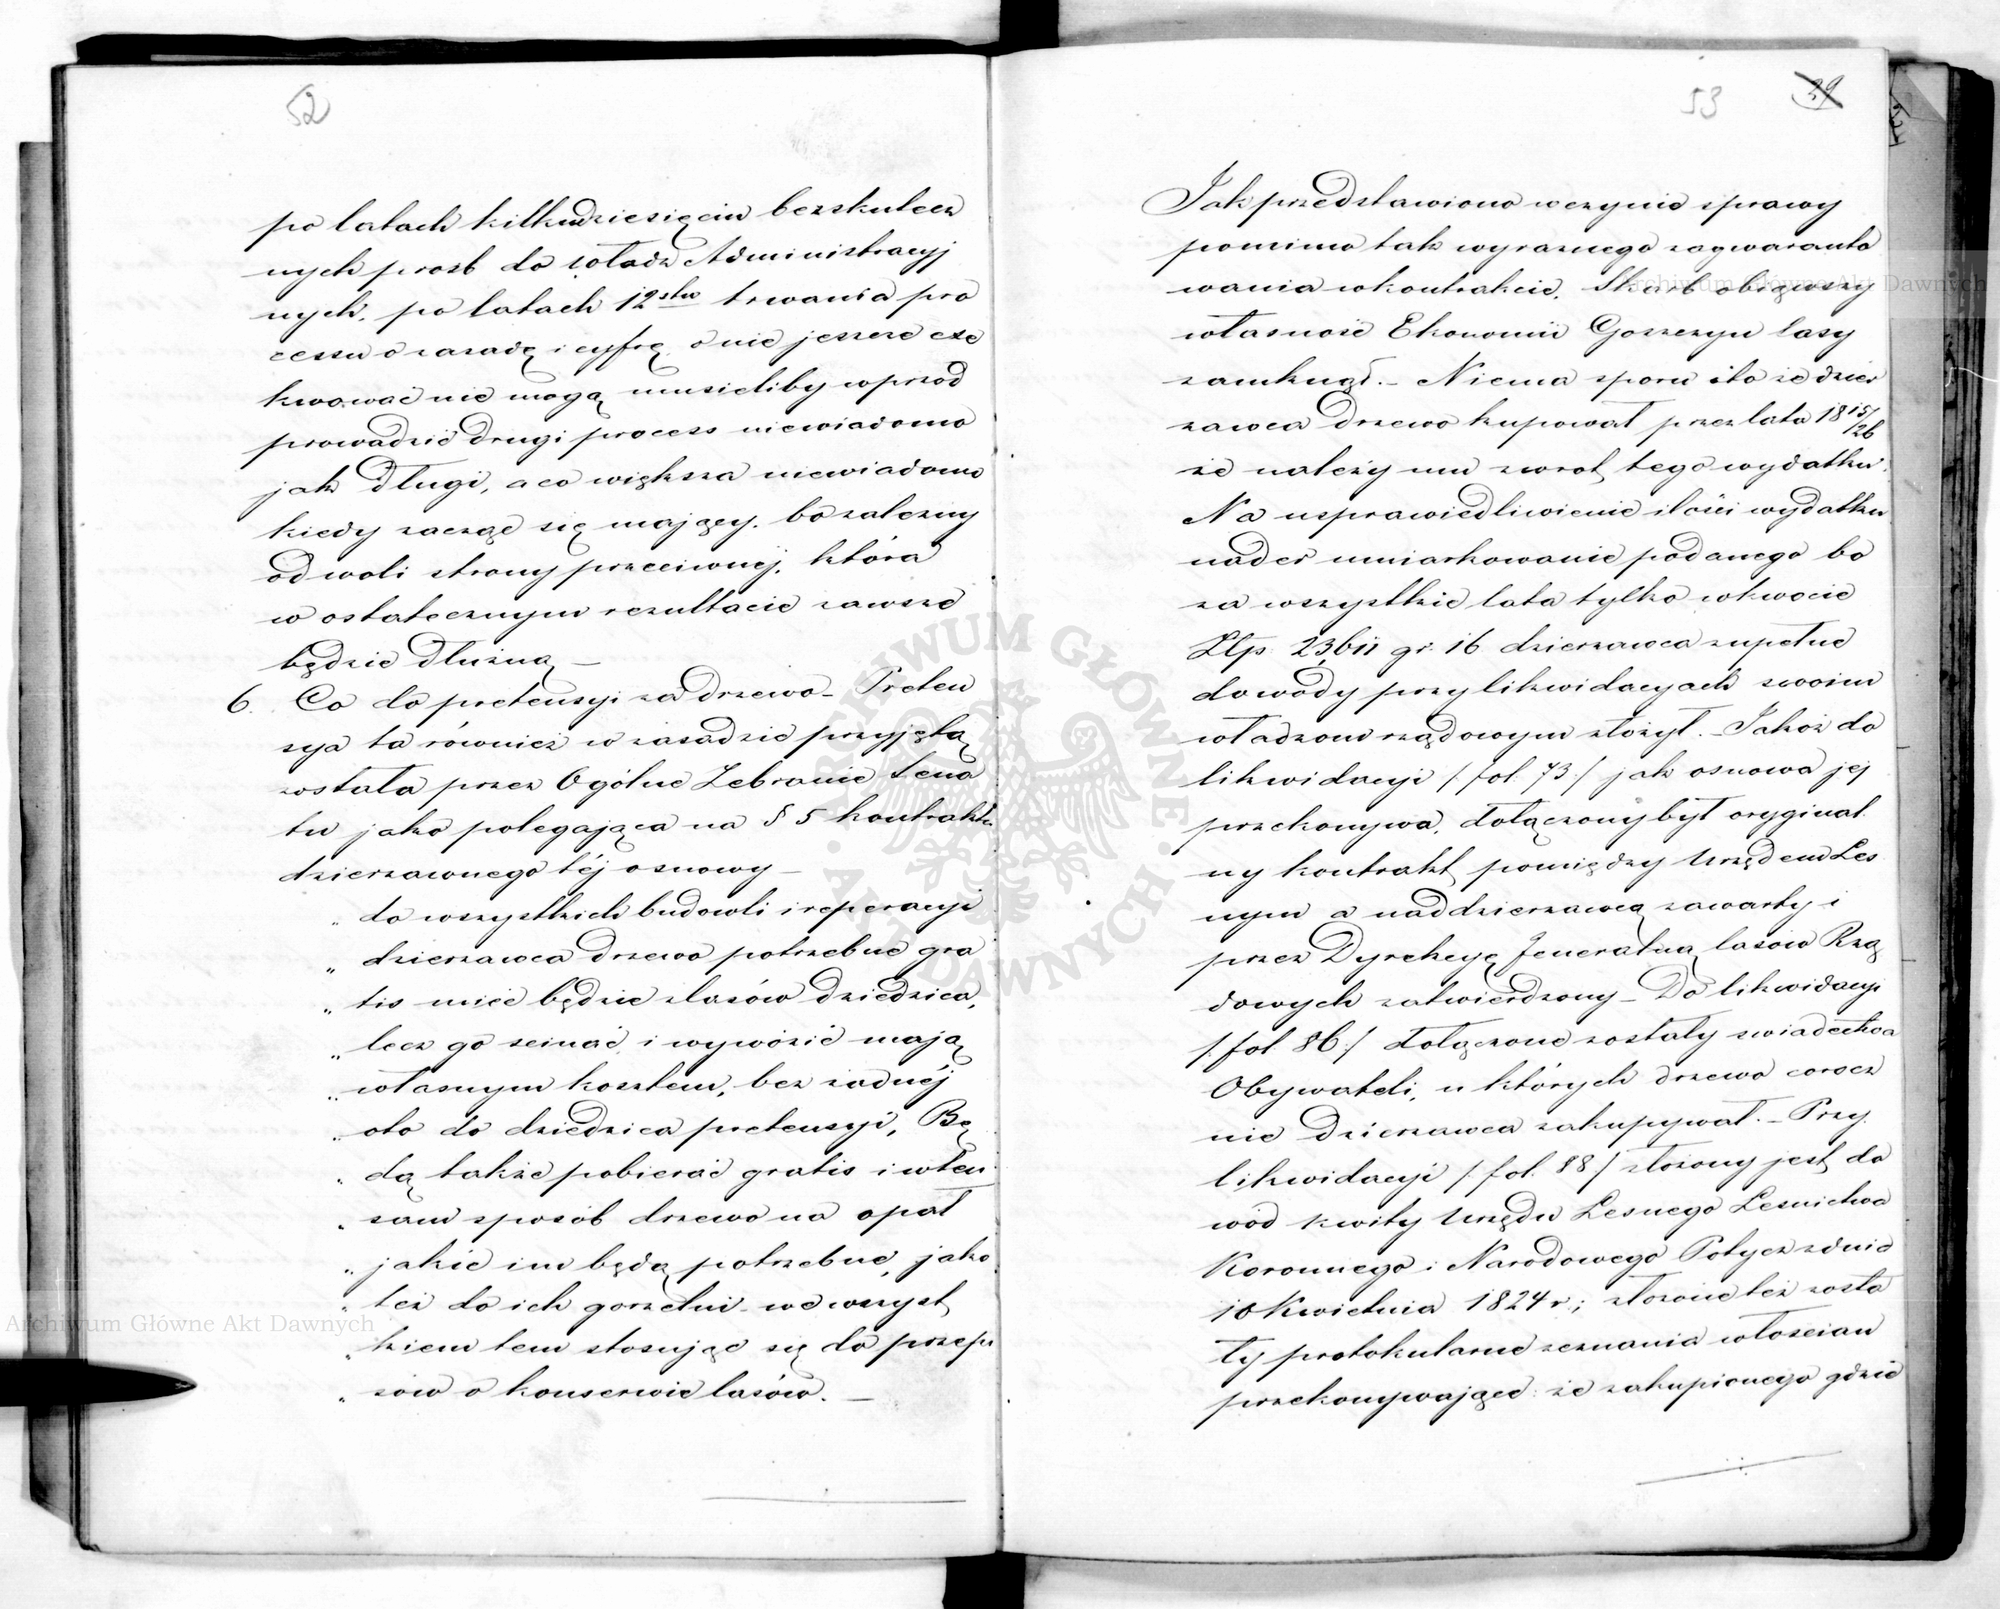 52
po latach kilkudziesięciu bezskutecz
nych prośb do władz Administracyj
nych, po latach 12stu trwania pro
cessu o zasadę i cyfrę, o nie jeszcze exe
kwować nie mogą musieliby wprzód
prowadzić drugi process niewiadomo
jak długi, a co większa niewiadomo
kiedy zacząć się mający, bo zależny
od woli strony przeciwnej, która
w ostatecznym rezultacie zawsze
będzie dłużną —
6. Co do pretensyi za drzewo – Preten
sya ta również w zasadzie przyjętą
została przez Ogólne Zebranie Sena
tu jako polegająca na § 5 kontraktu
dzierzawnego téj osnowy —
„ do wszystkich budowli i reperacyi
„ dzierzawca drzewo potrzebne gra
„ tis mieć będzie z lasów dziedzica,
„ lecz go ścinać i wywozić mają
„ własnym kosztem, bez żadnéj
„ oto do dziedzica pretensyi, Bę
„ dą także pobierać gratis i w ten
„ sam sposób drzewo na opał
„ jakie im będą potrzebne, jako
„ też do ich gorzelni we wszyst
„ kiem tem stosując się do przepi
„ sów o konserwie lasów. —
53 39
Jak przedstawiono w czynie sprawy
pomimo tak wyraznego zagwaranto
wania w kontrakcie, Skarb objąwszy
własność Ekonomii Goszczyn lasy
zamknął. – Niema sporu i to że dzier
zawca drzewo kupował przez lata 1815/26
że należy mu zwrot tego wydatku.
Na usprawiedliwienie ilości wydatku
nader umiarkowanie podanego bo
za wszystkie lata tylko w kwocie
Złp. 23,611 gr. 16 dzierzawca zupełne
dowody przy likwidacyach swoim
władzom rządowym złożył. – Jakoż do
likwidacyi /: fol. 73 :/ jak osnowa jej
przekonywa, dołączony był oryginal
ny kontrakt pomiędzy Urzędem Leś
nym a naddzierzawcą zawarty i
przez Dyrekcyę Jeneralną lasów Rzą
dowych zatwierdzony – Do likwidacyi
/: fol. 86 :/ dołączone zostały świadectwa
Obywateli, u których drzewo corocz
nie Dzierzawca zakupywał. – Przy
likwidacyi /: fol. 88 / złożony jest do
wód kwity Urzędu Leśnego Leśnictwa
Koronnego i Narodowego Potycz z dnia
10 Kwietnia 1824 r.; złożone też zosta
ły protokularne zeznania włościan
przekonywające: że zakupionego gdzie
Archiwum Główne Akt Dawnych
Archiwum Główne Akt Dawnych
ARCHIWUM GŁÓWNE · AKT DAWNYCH ·